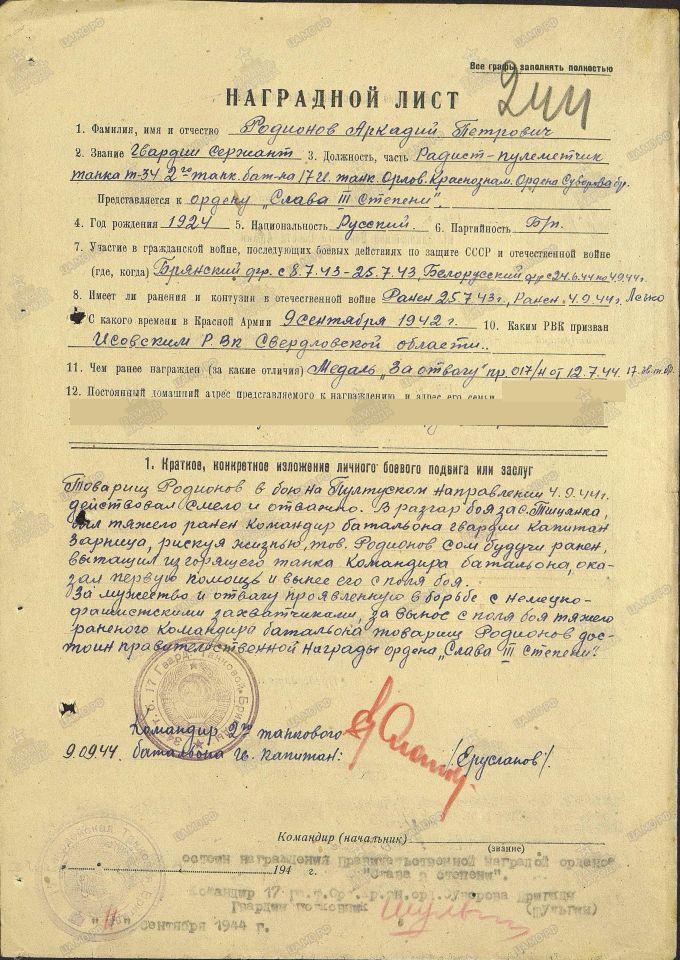 Все графы заполнять полностью
244
НАГРАДНОЙ ЛИСТ
1. Фамилия, имя и отчество Родионов Аркадий Петрович
2. Звание Гвардии Сержант 3. Должность, часть Радист-пулеметчик
танка Т-34 2го танк. бат-на 17 танк. Орлов. Краснознам. Ордена Суворова бр.
Представляется к ордену „Слава III Степени".
4. Год рождения 1924 5. Национальность Русский. 6. Партийность Б/п.
7. Участие в гражданской войне, последующих боевых действиях по защите СССР и отечественной войне
(где, когда) Брянский фр. с 8.7.43-25.7.43, Белорусский фр с 24.6.44 по 4.9.44г.
8. Имеет ли ранения и контузии в отечественной войне Ранен 25.7.43г., Ранен 4.9.44г.
С какого времени в Красной Армии 9 сентября 1942 г. 10. Каким РВК призван
Исовским РВК Свердловской области.
11. Чем ранее награжден (за какие отличия) Медаль „За отвагу" пр. 017/н от 12.7.44.
12. Постоянный домашний адрес представляемого к награждению и адрес его семьи
1. Краткое, конкретное изложение личного боевого подвига или заслуг
Товарищ Родионов в бою на Пултуском направлении 4.9.44г.
действовал смело и отважно. В разгар боя за с.
был тяжело ранен командир батальона гвардии капитан
Зарница, рискуя жизнью, тов. Родионов сом будучи ранен,
вытащил из горящего танка командира батальона, ока-
зал первую помощь и вынес его с поля боя.
За мужество и отвагу проявленную в борьбе с немецко-
фашистскими захватчиками, за вынос с поля боя тяжело
раненого командира батальона товарищ Родионов дос-
тоин правительственной награды ордена „Слава III степени".
Командир 2го танкового
9.09.44. батальона гв. капитан: /Ерусланов/.
Командир (начальник)
(звание)
194 г.
остоин награждения правительственной наградой орденом
"Слава 3 степени".
Командир 17 Суворова бригады
Гвардии полковник (Шульгин)
"11" сентября 1944 г.